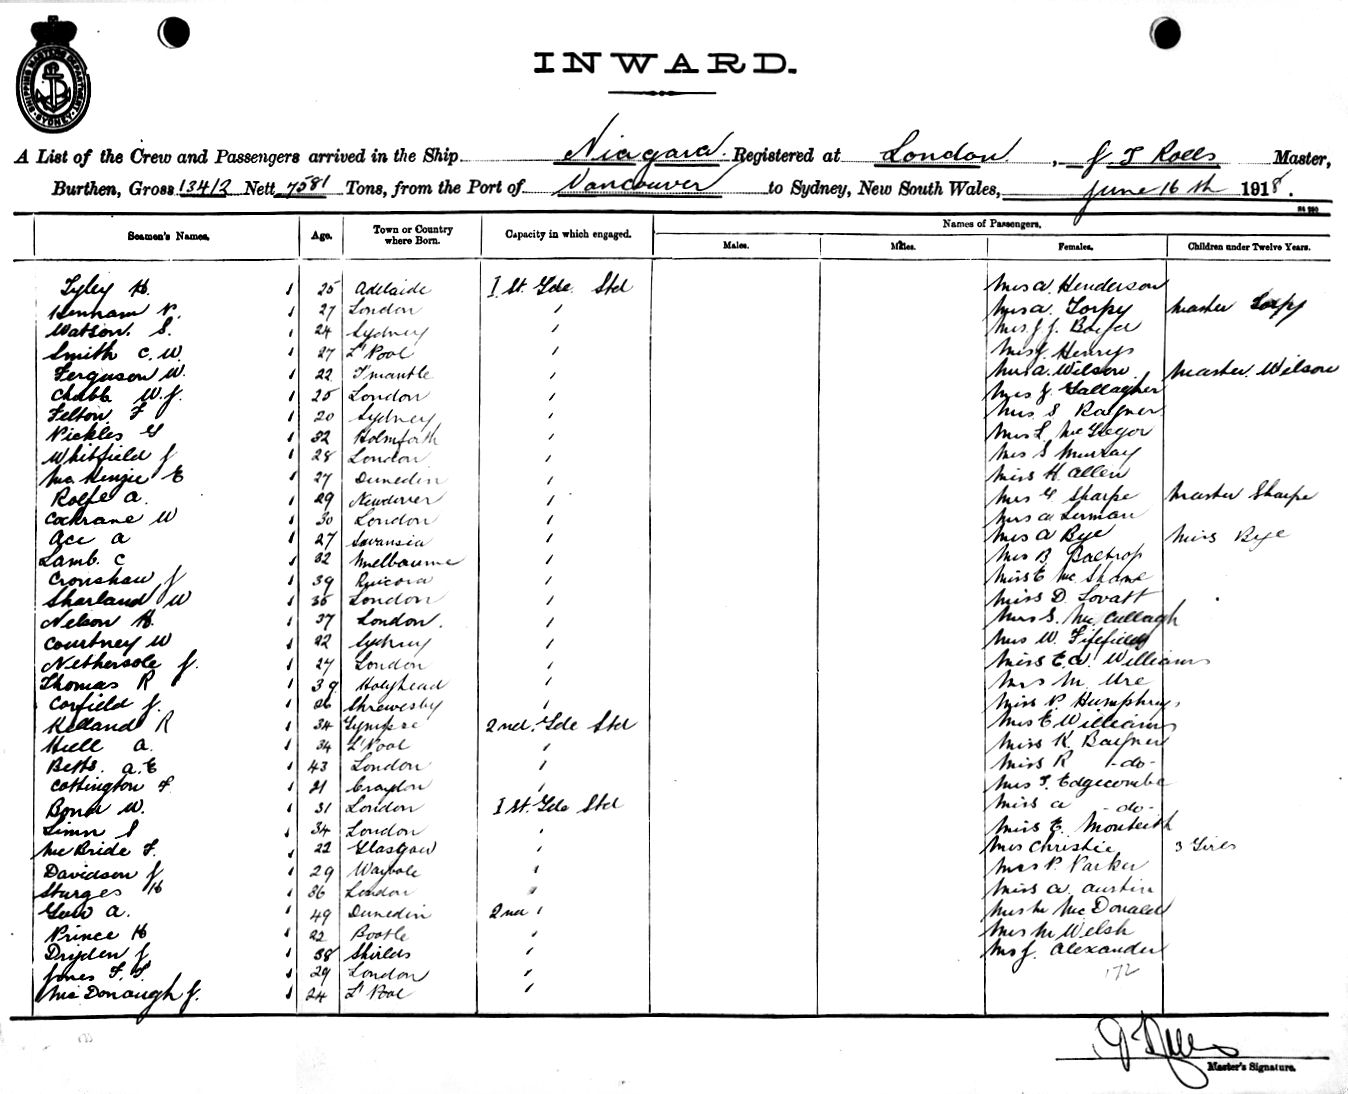 SHIPPING MASTER'S DEPARTMENT SYDNEY
INWARD.
A List of the Crew and Passengers arrived in the Ship Niagara Registered at London, J T Rolls Master,
Burthen, Gross 13412 Nett 7581 Tons, from the Port of Vancouver to Sydney, New South Wales, June 16th 1918.
Seamen's Names. Age. Town or Country where Born. Capacity in which engaged. Names of Passengers.
Males. Males. Females. Children under Twelve Years.
Lyley H. 1 25 Adelaide 1 St. Gde. Std Mrs A. Henderson
Henham P. 1 27 London " Mrs A. Torpy Master Torpy
Watson. S. 1 24 Sydney " Mrs J. J.
Smith C. W. 1 27 L'Pool " Henrys
Ferguson W. 1 22 F'mantle " Mrs A. Wilson Master Wilson
Chubb W. J. 1 25 London " Mrs J. Gallagher
Felton F 1 20 Sydney " Mrs S Rayner
Pickles G 1 32 Holmfirth " Mrs L. McGregor
Whitfield J 1 28 London " Mrs S Murray
McKenzie E 1 27 Dunedin " Miss H Allen
Rolfe A. 1 29 " Mrs G Sharpe Master Sharpe
Cochrane W 1 30 London " Mrs A Lerman
Ace A 1 27 Swansea " Mrs A Bye Miss Bye
Lamb. C 1 32 Melbourne " Mrs B.
Cronshaw J 1 39 " Miss E McShane
Sharland W 1 35 London " Miss D Lovatt
Nelson H. 1 37 London. " Mrs S. McCullagh
Courtney W 1 22 Sydney " Mrs W. Fifefield
Nethersole J. 1 27 London " Miss E. A. Williams
Thomas R 1 39 Holyhead " Mrs M. Ure
Corfield J. 1 26 Shrewesby " Miss P. Humphrys
Kelland R 1 34 Gympie 2nd. Gde Std Mrs E Williams
Hull A. 1 34 L'Pool " Miss K. Baigner
Betts. A. E 1 43 London " Miss R -do-
Cottington F. 1 21 Croydon " Mrs T. Edgecombe
Bond W. 1 31 London 1 St. Gde Std Miss A -do-
Simm S 1 34 London " Miss E. Monteith
McBride F. 1 22 Glasgow " Mrs Christie 3 Girls
Davidson J 1 29 " Mrs P. Parker
Sturges H 1 36 London " Miss A. Austin
A. 1 49 Dunedin 2nd " Mrs M McDonald
Prince H 1 22 Bootle " Mrs M Welsh
Dryden J 1 38 Shields " Mrs J. Alexander
Jones F. T. 1 29 London " 172
McDonaugh J. 1 24 L'Pool "
Master's Signature.